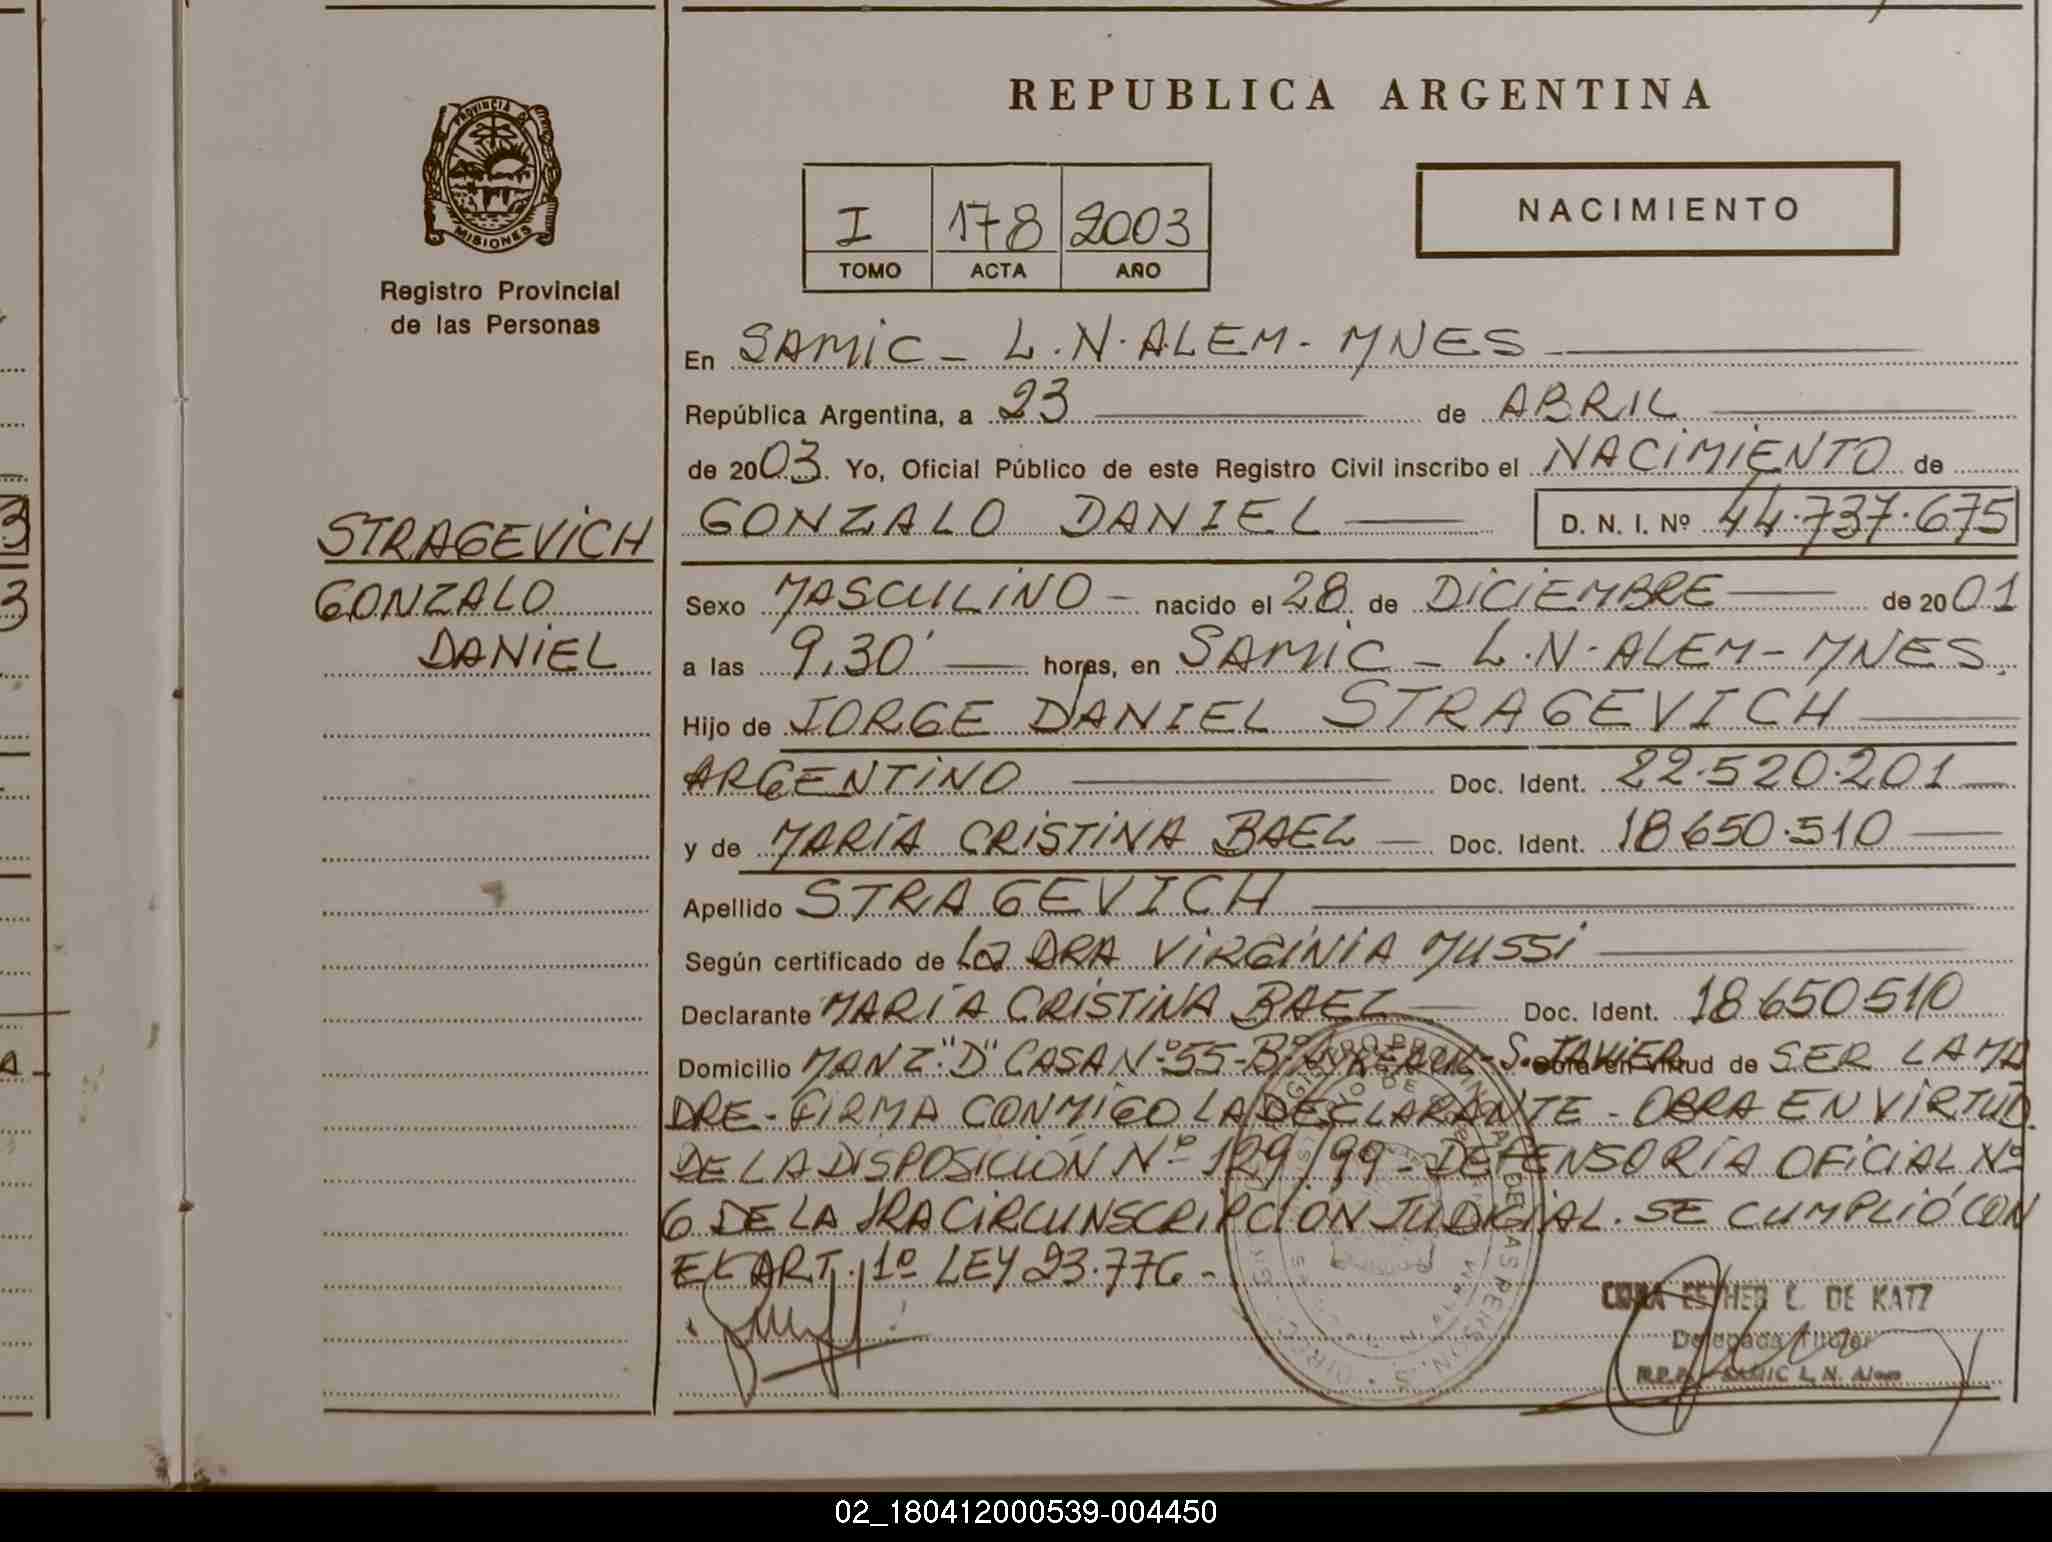 REPUBLICA ARGENTINA
PROVINCIA DE
MISIONES
Registro Provincial
de las Personas
I 178 2003
TOMO ACTA AÑO
NACIMIENTO
En SAMIC - L.N. ALEM - MNES
República Argentina, a 23 de ABRIL
de 2003. Yo, Oficial Público de este Registro Civil inscribo el NACIMIENTO de
GONZALO DANIEL D. N. I. Nº 44.737.675
STRAGEVICH
GONZALO
DANIEL
Sexo MASCULINO - nacido el 28 de DICIEMBRE de 2001
a las 9,30' horas, en SAMIC - L.N. ALEM - MNES.
Hijo de JORGE DANIEL STRAGEVICH
ARGENTINO Doc. Ident. 22.520.201
y de MARÍA CRISTINA BAEZ Doc. Ident. 18.650.510
Apellido STRAGEVICH
Según certificado de La DRA VIRGINIA MUSSI
Declarante MARÍA CRISTINA BAEZ Doc. Ident. 18.650.510
Domicilio MANZ. "D" CASA Nº 55 - S. JAVIER Obra en virtud de SER LA MA
DRE - FIRMA CONMIGO LA DECLARANTE - OBRA EN VIRTUD
DE LA DISPOSICIÓN Nº 129/99 - DEFENSORÍA OFICIAL Nº
6 DE LA 1RA CIRCUNSCRIPCIÓN JUDICIAL. SE CUMPLIÓ CON
EL ART. 1º LEY 23.776 -
ESTHER L. DE KATZ
Delegada Titular
R.P.P. SAMIC L.N. Alem
02_180412000539-004450